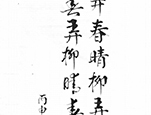 弄春晴柳弄
春弄柳晴春
丙申